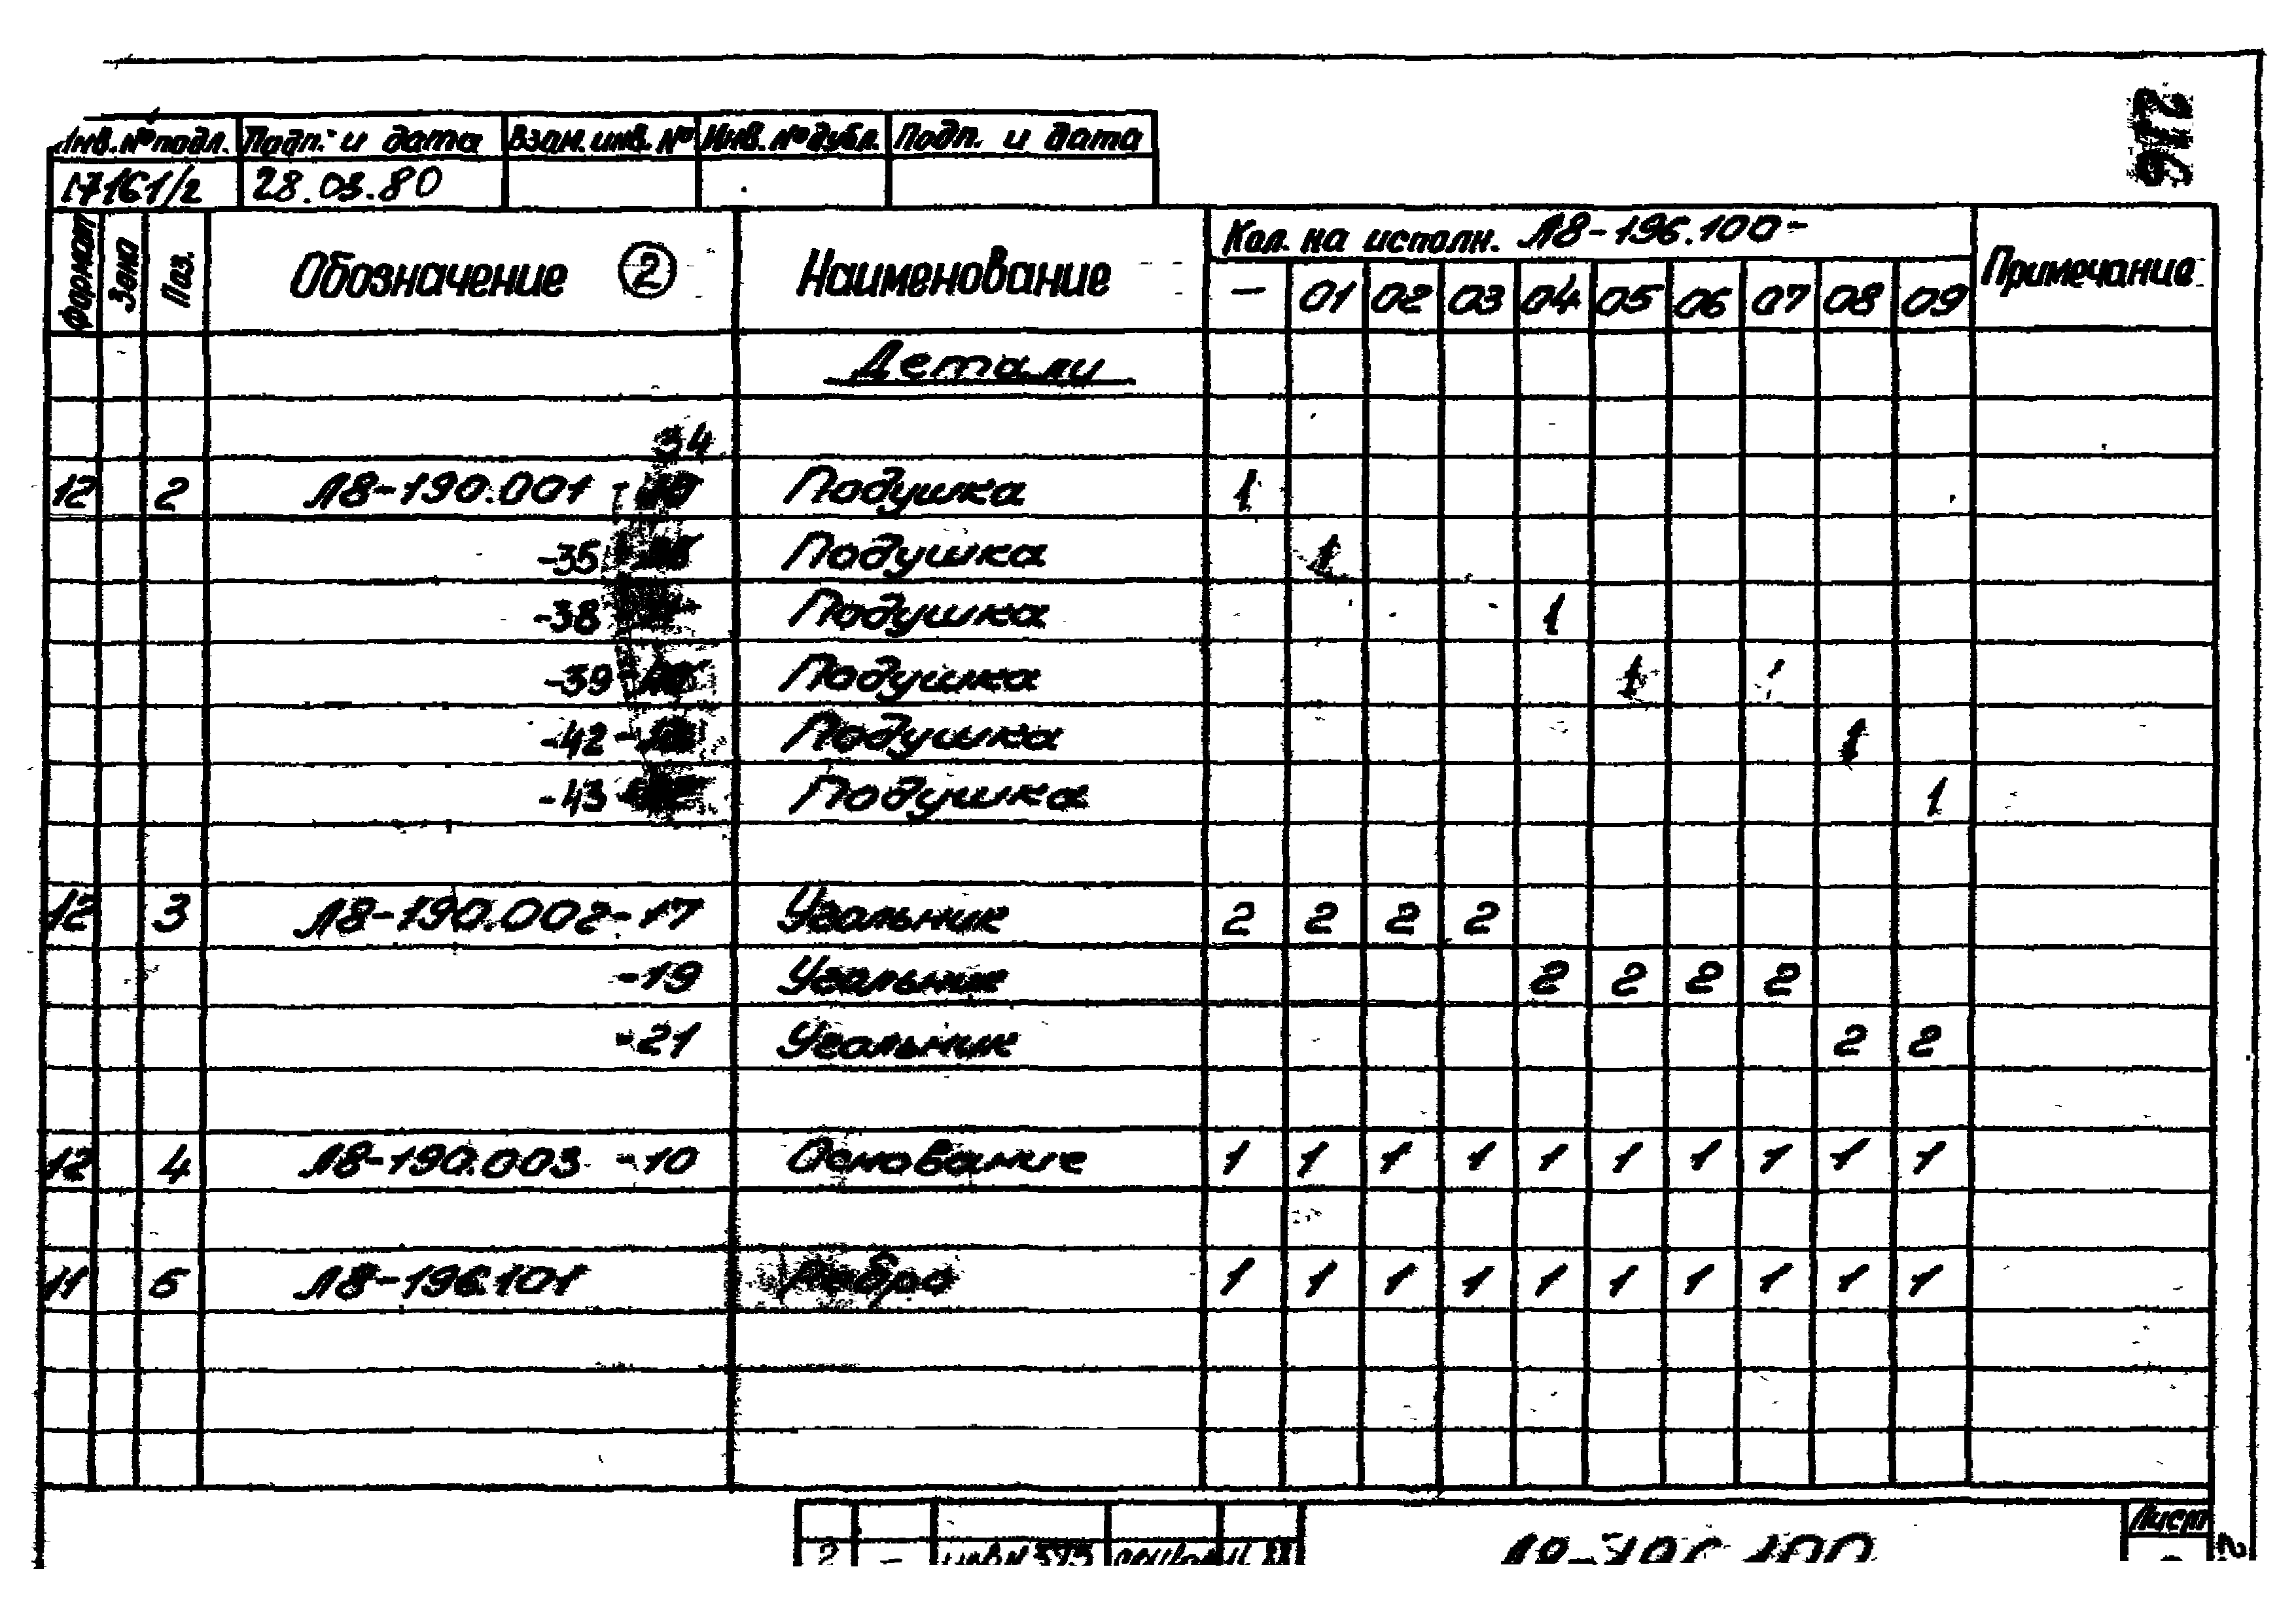 Инв. № подл. Подп. и дата Взам. инв. № Инв. № дубл. Подп. и дата
17161/2 28.03.80
Формат Зона Поз. Обозначение 2 Наименование Кол. на исполн. Л8-196.100- Примечание
– 01 02 03 04 05 06 07 08 09
Детали
34
12 2 Л8-190.001 - Подушка 1
-35 Подушка 1
-38 Подушка 1
-39 Подушка 1
-42 Подушка 1
-43 Подушка 1
12 3 Л8-190.002-17 Угольник 2 2 2 2
-19 Угольник 2 2 2 2
-21 Угольник 2 2
12 4 Л8-190.003 -10 Основание 1 1 1 1 1 1 1 1 1 1
11 5 Л8-196.101 Ребро 1 1 1 1 1 1 1 1 1 1
Лист
2 – Л8-196.100